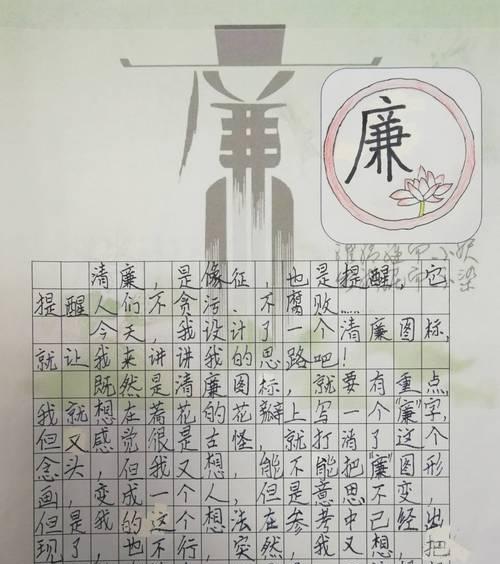 廉
廉
清廉，是像征，也是提醒，它
提醒人们不贪污、不腐败……
今天，我设计了一个清廉图标，
就让我来讲讲我的思路吧！
既然是清廉图标，就要有重点
我就想在荷花的花瓣上写一个"廉"字，
但又感觉很是古怪，就打消了这个
念头，但我又想，能不能把"廉"图形
画，变成一个人，但是意思不变，
但是我的这个想法在参考中已经出
现了，也不行，突然，我又想，把